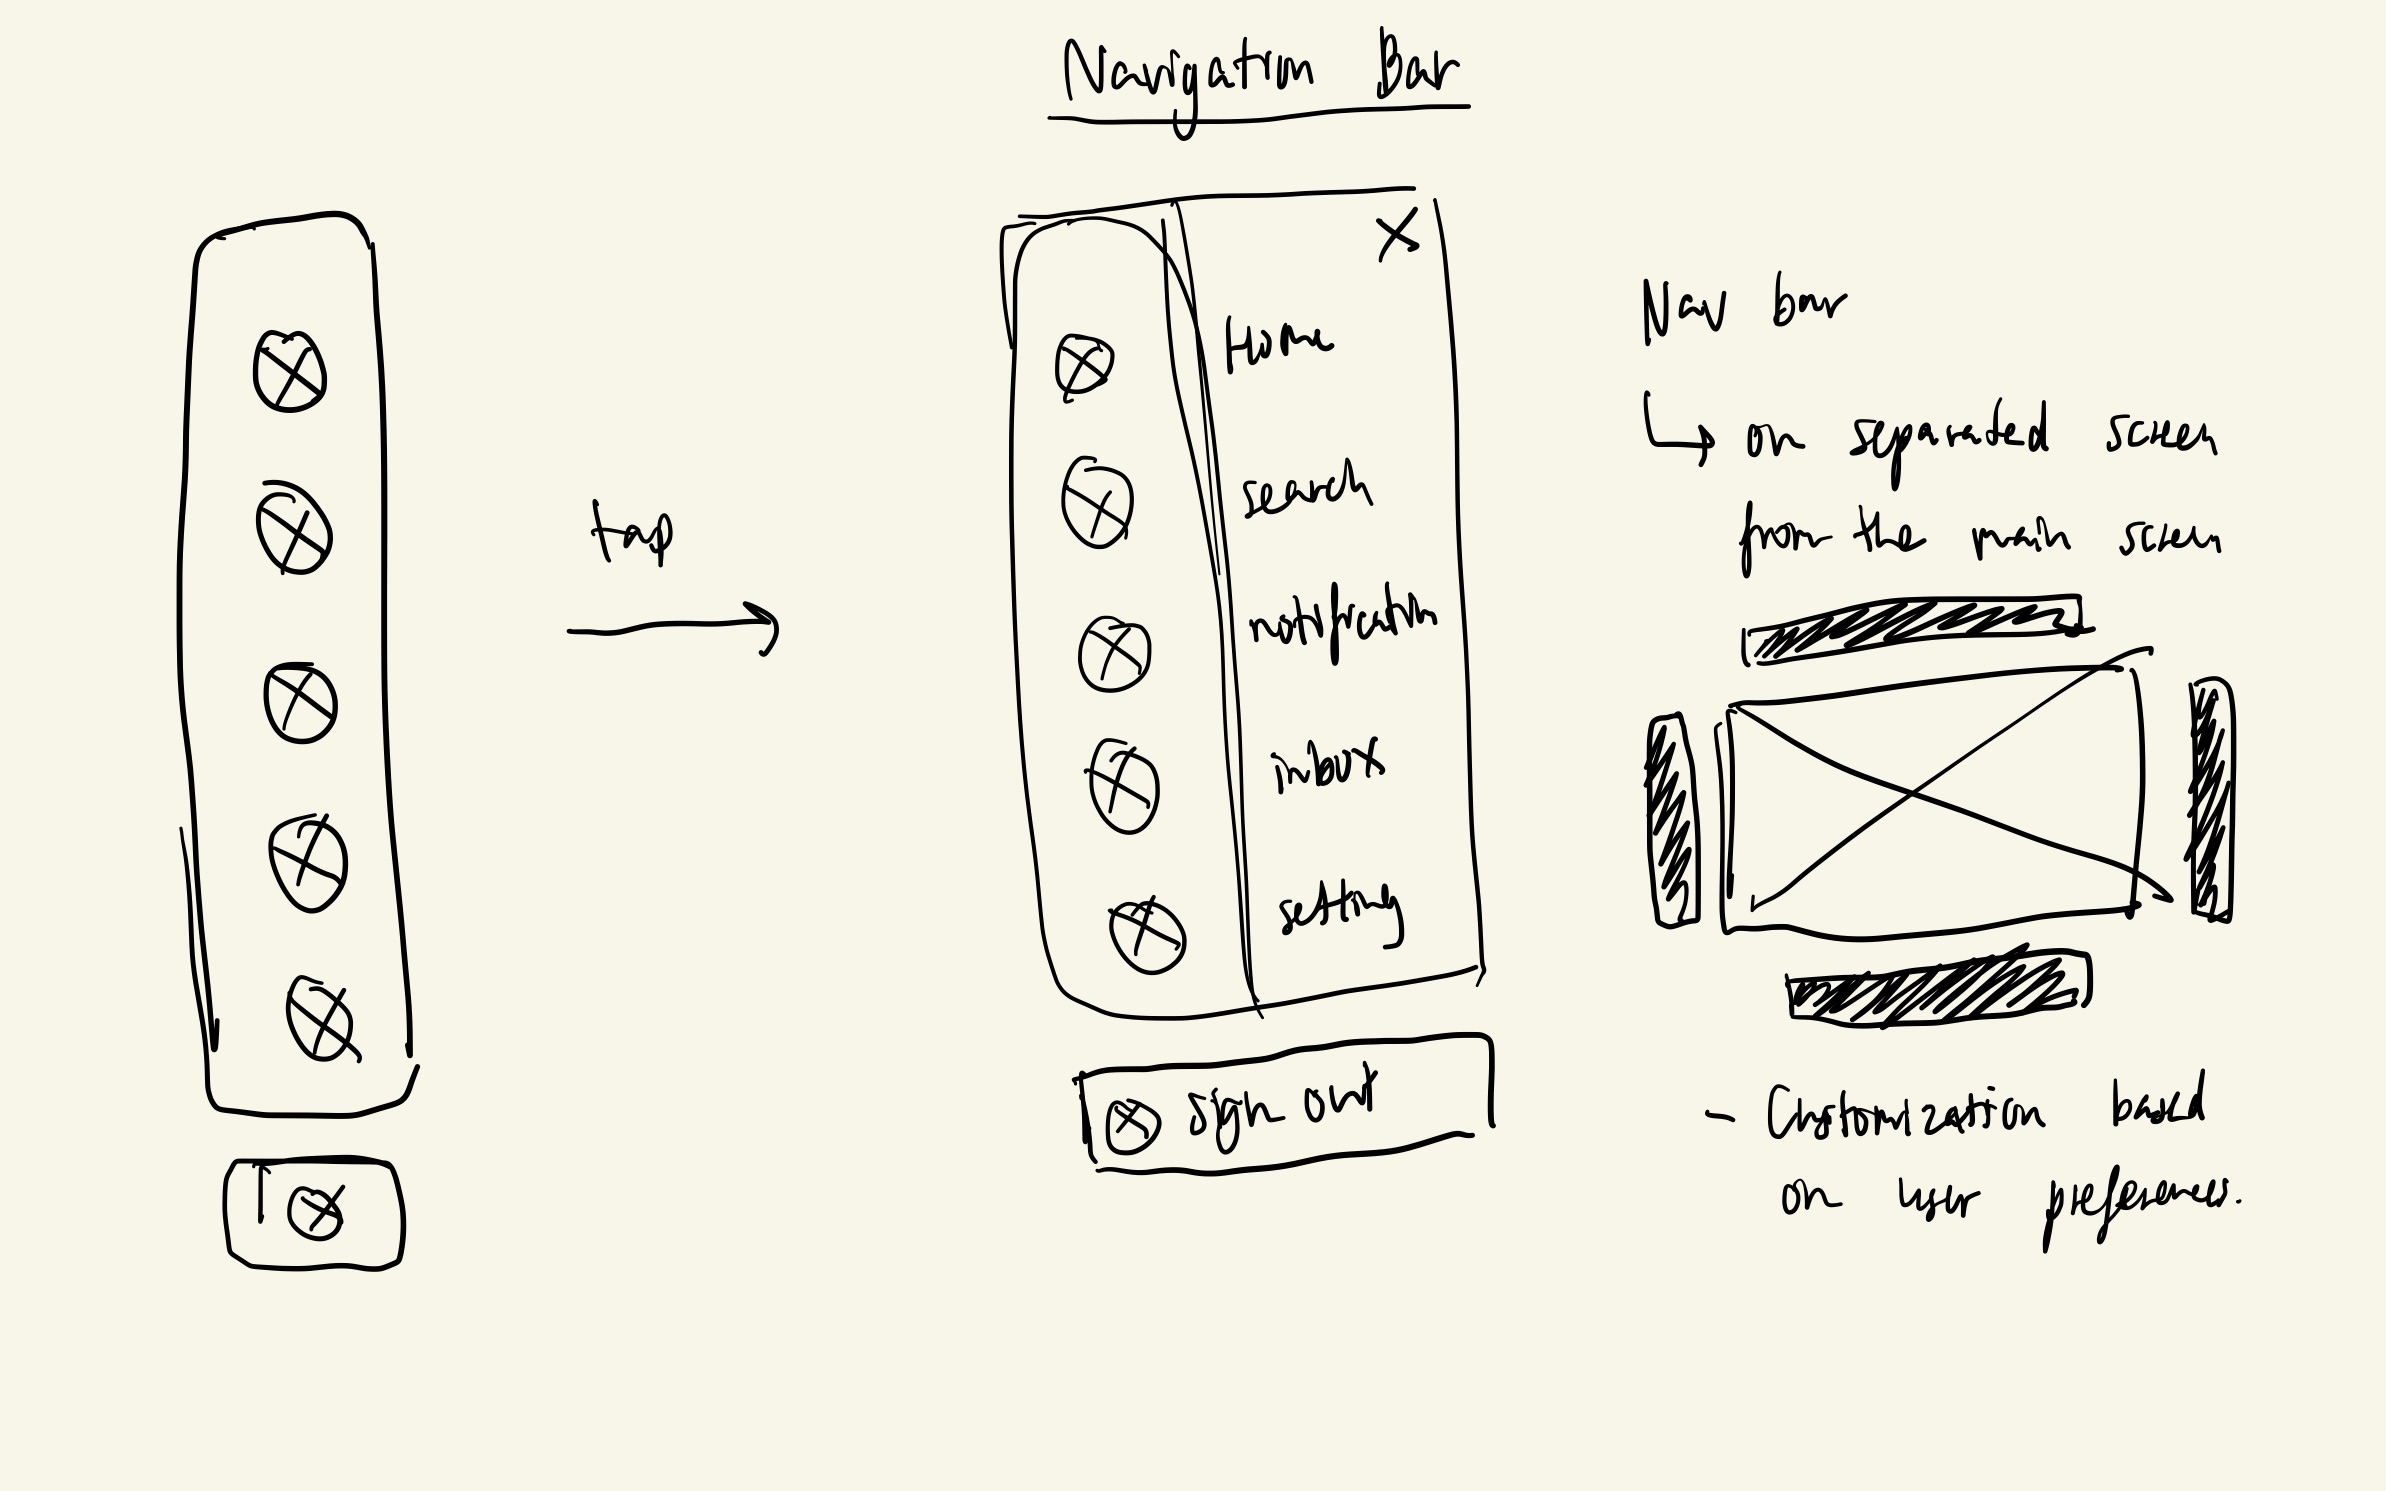 Navigation Bar
tap
Home
search
notification
inbox
setting
sign out
Nav bar
on separated screen
from the main screen
- Customization based
on user preferences.